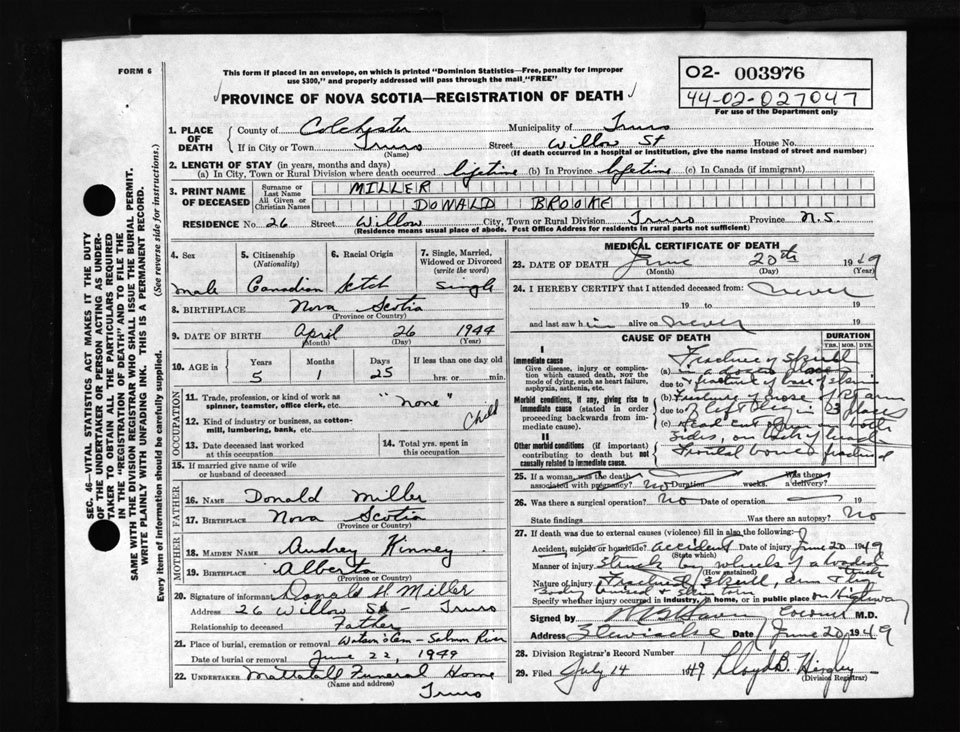 FORM 6
This form if placed in an envelope, on which is printed "Dominion Statistics—Free, penalty for improper
use $300," and properly addressed will pass through the mail "FREE"
PROVINCE OF NOVA SCOTIA—REGISTRATION OF DEATH
02- 003976
44-02-027047
For use of the Department only
SEC. 46—VITAL STATISTICS ACT MAKES IT THE DUTY
OF THE UNDERTAKER OR PERSON ACTING AS UNDER-
TAKER TO OBTAIN ALL THE PARTICULARS REQUIRED
IN THE "REGISTRATION OF DEATH" AND TO FILE THE
SAME WITH THE DIVISION REGISTRAR WHO SHALL ISSUE THE BURIAL PERMIT.
WRITE PLAINLY WITH UNFADING INK. THIS IS A PERMANENT RECORD.
Every item of information should be carefully supplied. (See reverse side for instructions.)
1. PLACE OF DEATH
County of Colchester Municipality of Truro
If in City or Town Truro Street Willow St House No.
(Name) (If death occurred in a hospital or institution, give the name instead of street and number)
2. LENGTH OF STAY (in years, months and days)
(a) In City, Town or Rural Division where death occurred lifetime (b) In Province lifetime (c) In Canada (if immigrant)
3. PRINT NAME OF DECEASED
Surname or Last Name MILLER
All Given or Christian Names DONALD BROOKE
RESIDENCE No. 26 Street Willow City, Town or Rural Division Truro Province N.S.
(Residence means usual place of abode. Post Office Address for residents in rural parts not sufficient)
4. Sex male
5. Citizenship (Nationality) Canadian
6. Racial Origin Sctch
7. Single, Married, Widowed or Divorced (write the word) Single
8. BIRTHPLACE Nova Scotia
(Province or Country)
9. DATE OF BIRTH April 26 1944
(Month) (Day) (Year)
10. AGE in Years 5 Months 1 Days 25 If less than one day old hrs. or min.
OCCUPATION
11. Trade, profession, or kind of work as
spinner, teamster, office clerk, etc. "none"
12. Kind of industry or business, as cotton-
mill, lumbering, bank, etc. Child
13. Date deceased last worked
at this occupation
14. Total yrs. spent in
this occupation
15. If married give name of wife
or husband of deceased
FATHER
16. NAME Donald Miller
17. BIRTHPLACE Nova Scotia
(Province or Country)
MOTHER
18. MAIDEN NAME Audrey Kinney
19. BIRTHPLACE Alberta
(Province or Country)
20. Signature of informant Donald H. Miller
Address 26 Willow St - Truro
Relationship to deceased Father
21. Place of burial, cremation or removal Salmon River
Date of burial or removal June 22, 1949
22. UNDERTAKER Mattatall Funeral Home
(Name and address) Truro
MEDICAL CERTIFICATE OF DEATH
23. DATE OF DEATH June 20th 1949
(Month) (Day) (Year)
24. I HEREBY CERTIFY that I attended deceased from: never
19 to 19
and last saw him alive on never 19
CAUSE OF DEATH
DURATION
YRS. MOS. DYS.
I
Immediate cause
Give disease, injury or complica-
tion which caused death, NOT the
mode of dying, such as heart failure,
asphyxia, asthenia, etc.
(a) Fracture of Skull
in a dozen places
due to fracture of base of
Morbid conditions, if any, giving rise to
immediate cause (stated in order
proceeding backwards from im-
mediate cause).
(b) Fracture of
due to left leg in 3 places
(c) Head cut open on both
sides, on back of head
II
Other morbid conditions (if important)
contributing to death but not
causally related to immediate cause.
Frontal bone fractured
25. If a woman, was the death
associated with pregnancy? No Duration weeks. Was there
a delivery?
26. Was there a surgical operation? No Date of operation 19
State findings Was there an autopsy? No
27. If death was due to external causes (violence) fill in also the following:
Accident, suicide or homicide? accident Date of injury June 20 1949
(State which)
Manner of injury Struck by wheels of a truck
(How sustained)
Nature of injury Fractured Skull, arm & leg
Specify whether injury occurred in industry, in home, or in public place on highway
Signed by Coroner M.D.
Address Date June 20 1949
28. Division Registrar's Record Number
29. Filed July 14 1949 Lloyd D. Hingley
(Division Registrar)